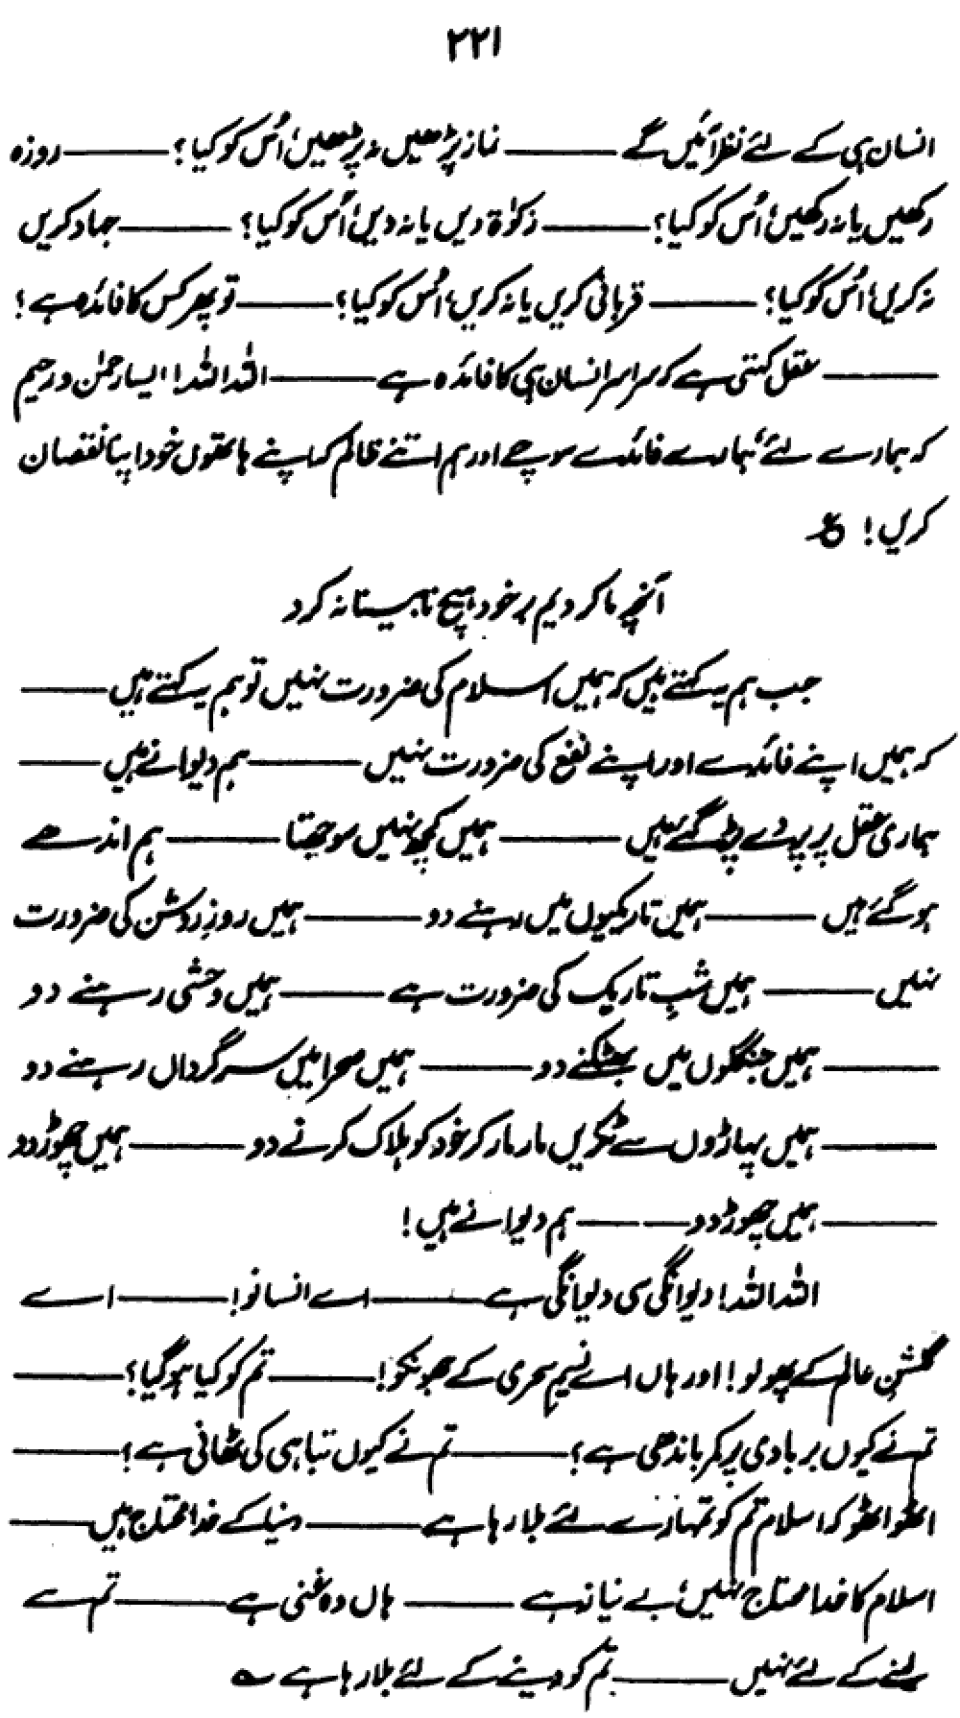 ۲۲۱
انسان ہی کے لئے نظر آئیں گے ——— نماز پڑھیں نہ پڑھیں، اُس کو کیا؟ ——— روزہ
رکھیں یا نہ رکھیں، اُس کو کیا؟ ——— زکوٰۃ دیں یا نہ دیں، اُس کو کیا؟ ——— جہاد کریں
نہ کریں، اُس کو کیا؟ ——— قربانی کریں یا نہ کریں، اُس کو کیا؟ ——— تو پھر کس کا فائدہ ہے؟
——— عقل کہتی ہے کہ سراسر انسان ہی کا فائدہ ہے ——— اللہ اللہ! ایسا رحمٰن و رحیم
کہ ہمارے لئے، ہمارے فائدے سوچے اور ہم اتنے ظالم کہ اپنے ہاتھوں خود اپنا نقصان
کریں! ع
آنچہ ما کردیم بر خود ہیچ نابینا نہ کرد
جب ہم یہ کہتے ہیں کہ ہمیں اسلام کی ضرورت نہیں تو ہم یہ کہتے ہیں ———
کہ ہمیں اپنے فائدے اور اپنے نفع کی ضرورت نہیں ——— ہم دیوانے ہیں ———
ہماری عقل پر پردے پڑ گئے ہیں ——— ہمیں کچھ نہیں سوجھتا ——— ہم اندھے
ہو گئے ہیں ——— ہمیں تاریکیوں میں رہنے دو ——— ہمیں روزِ روشن کی ضرورت
نہیں ——— ہمیں شبِ تاریک کی ضرورت ہے ——— ہمیں وحشی رہنے دو
——— ہمیں جنگلوں میں بھٹکنے دو ——— ہمیں صحرا میں سرگرداں رہنے دو
——— ہمیں پہاڑوں سے ٹکریں مار مار کر خود کو ہلاک کرنے دو ——— ہمیں چھوڑ دو
——— ہمیں چھوڑ دو ——— ہم دیوانے ہیں!
اللہ اللہ! دیوانگی سی دیوانگی ہے ——— اے انسانو! ——— اے
گلشنِ عالم کے پھولو! اور ہاں اے نسیمِ سحری کے جھونکو! ——— تم کو کیا ہو گیا؟ ———
تم نے کیوں بربادی پر کمر باندھی ہے؟ ——— تم نے کیوں تباہی کی ٹھانی ہے؟ ———
اٹھو اٹھو کہ اسلام تم کو تمہارے لئے بلا رہا ہے ——— دنیا کے خدا محتاج ہیں ———
اسلام کا خدا محتاج نہیں، بے نیاز ہے ——— ہاں وہ غنی ہے ——— تم سے
لینے کے لئے نہیں ——— تم کو دینے کے لئے بلا رہا ہے ؎